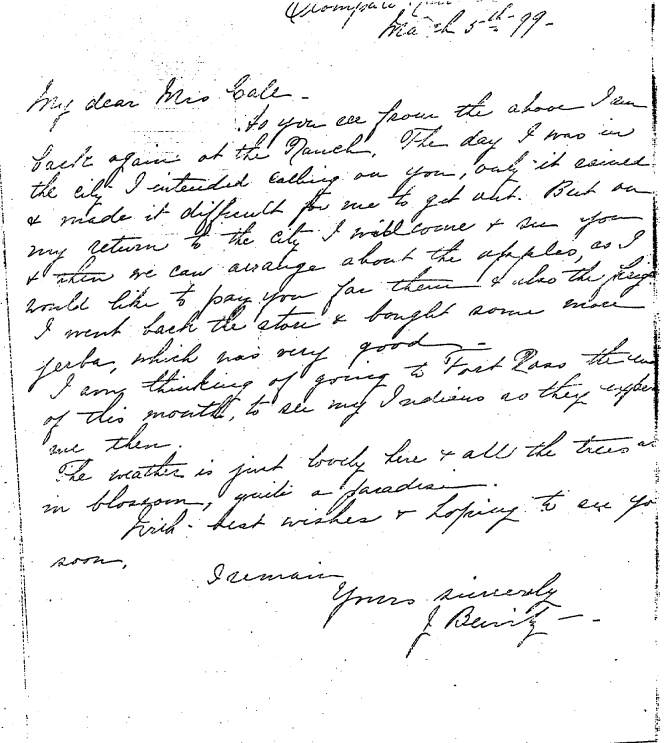 March 5th - 99 -
My dear Mrs Gale -
As you see from the above I am
back again at the Ranch. The day I was in
the city I intended calling on you, only it rained
& made it difficult for me to get out. But on
my return to the city I will come & see you
& then we can arrange about the apples, as I
would like to pay you for them & also the
I went back the store & bought some more
yerba, which was very good -
I am thinking of going to Fort Ross the
of this month, to see my Indians so they
me then.
The weather is just lovely here & all the trees
in blossom, quite a paradise.
With best wishes & hoping to see yo
soon,
I remain
Yours sincerely
J